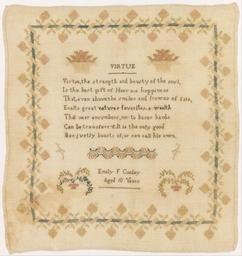 VIRTUE
Virtue, the strength and beauty of the soul,
Is the best gift of Heaven a happiness
That, even above the smiles and frowns of fate,
Exalts great natures favorites: a wealth
That neer encumbers, nor to baser hands
Can be transferr'd. It is the only good
Man justly boasts of, or can call his own.
Emily F
Aged 10 Years